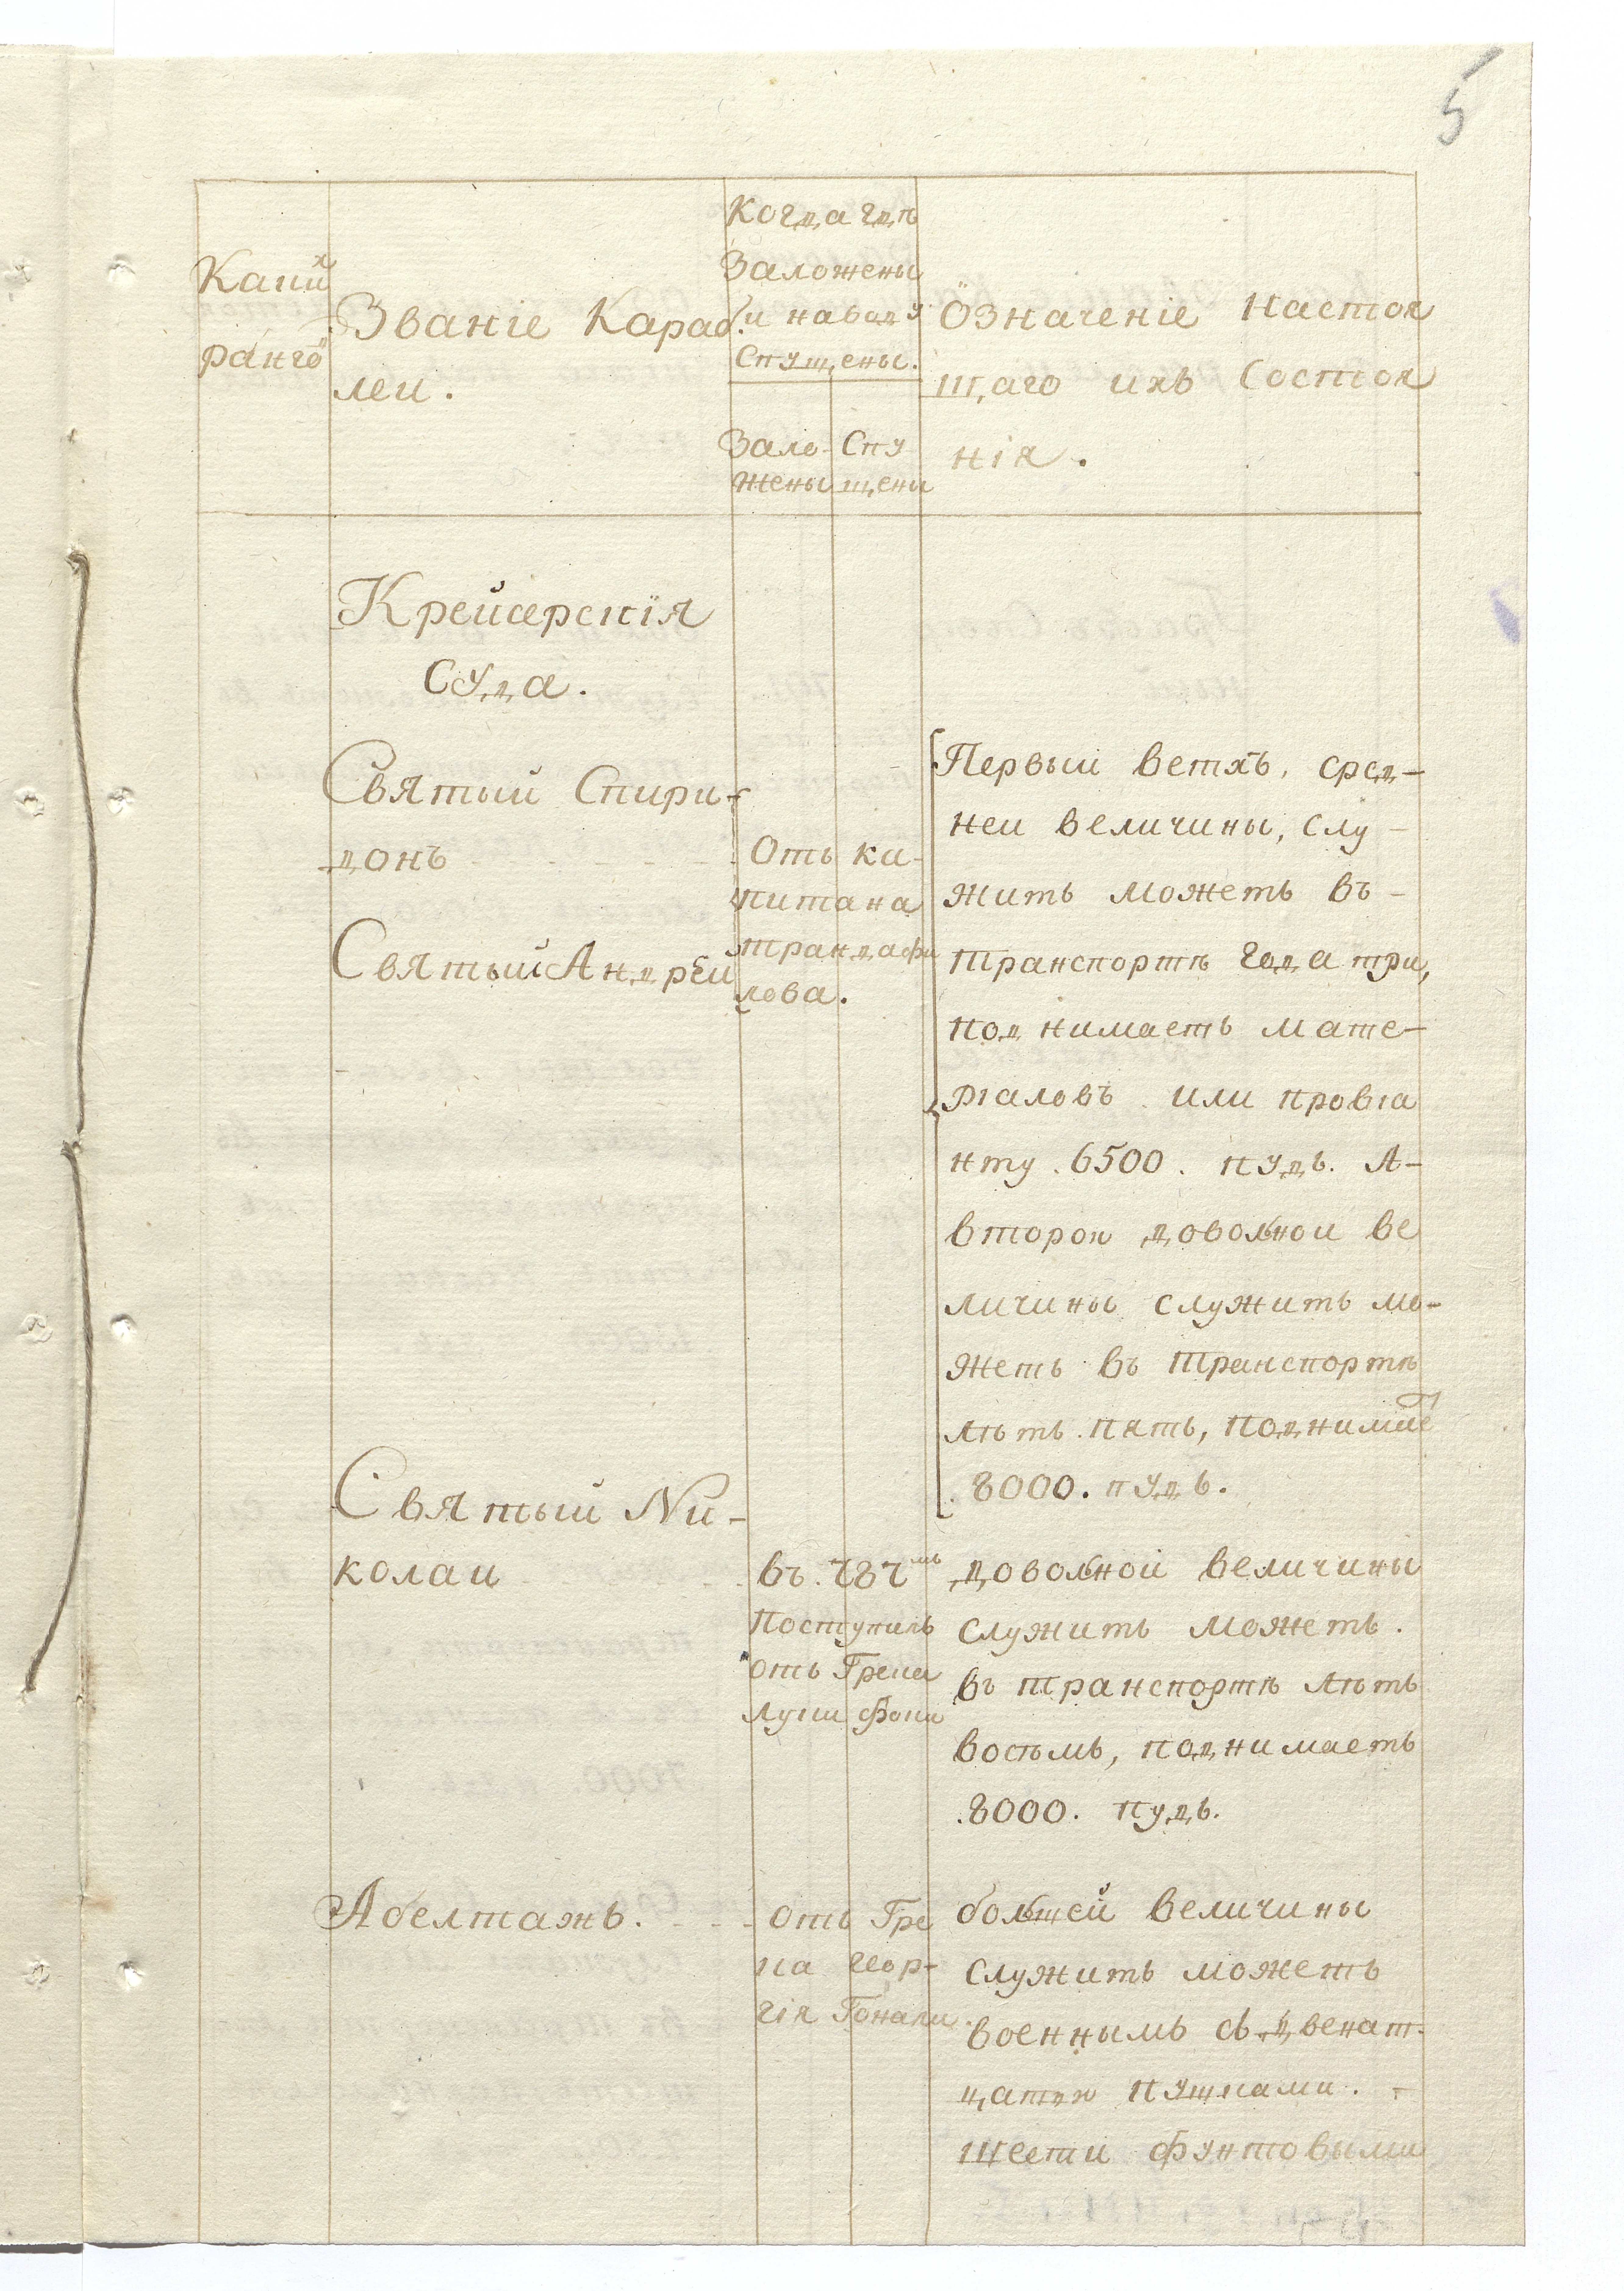 5
Какихъ
ранговъ
Званіе Караб.
леи.
Когда гдѣ
Заложены
и наводу
Спущены.
Зало-
жены
Спу
щены
Означеніе Настоя
щаго ихъ Состоя
нія.
Крейсерскія
Суда.
Святыи Спири-
донъ
Святый Андреи
Отъ ка-
питана
трандафи
лова.
Первыи ветхъ, сред-
неи величины, слу-
жить можетъ въ-
транспортѣ года три,
поднимаетъ мате-
ріаловъ или провіа
нту .6500. пудъ. А-
второи доволнои ве
личины служить мо-
жетъ въ транспортѣ
лѣтъ пять, поднимает
.8000. пудъ.
Святыи Ни-
колаи
въ. 787мъ
Поступилъ
отъ Грека
луки фоки
доволнои величины
служить можетъ.
въ транспортѣ лѣтъ
восемь, поднимаетъ
.8000. пудъ.
Абелтажъ.
отъ Гре
ка геор-
гія Гонали.
болшей величины
служить можетъ
военнымъ съ двенат-
цатю пушками. -
шести фунтовыми